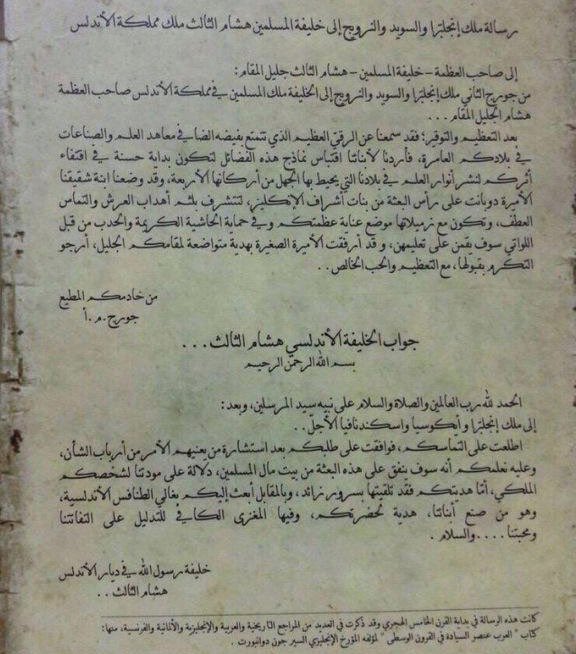 رسالة ملك إنجلترا والسويد والنرويج إلى خليفة المسلمين هشام الثالث ملك مملكة الأندلس
إلى صاحب العظمة - خليفة المسلمين - هشام الثالث جليل المقام:
من جورج الثاني ملك إنجلترا والسويد والنرويج إلى الخليفة ملك المسلمين في مملكة الأندلس صاحب العظمة
هشام الجليل المقام...
بعد التعظيم والتوقير؛ فقد سمعنا عن الرقيّ العظيم الذي تتمتع بفيضه الضافي معاهد العلم والصناعات
في بلادكم العامرة، فأردنا لأبنائنا اقتباس نماذج هذه الفضائل لتكون بداية حسنة في اقتفاء
أثركم لنشر أنوار العلم في بلادنا التي يحيط بها الجهل من أركانها الأربعة، وقد وضعنا ابنة شقيقنا
الأميرة دوبانت على رأس البعثة من بنات أشراف الإنكليز، لتتشرف بلثم أهداب العرش والتماس
العطف، وتكون مع زميلاتها موضع عناية عظمتكم وفي حماية الحاشية الكريمة والحدب من قبل
اللواتي سوف يقمن على تعليمهن، وقد أرفقت الأميرة الصغيرة بهدية متواضعة لمقامكم الجليل، أرجو
التكرم بقبولها، مع التعظيم والحب الخالص..
من خادمكم المطيع
جورج.م.أ
جواب الخليفة الأندلسي هشام الثالث...
بسم الله الرحمن الرحيم
الحمد لله رب العالمين والصلاة والسلام على نبيه سيد المرسلين، وبعد:
إلى ملك إنجلترا وأيكوسيا واسكندنافيا الأجلّ..
اطلعت على التماسكم، فوافقت على طلبكم بعد استشارة من يعنيهم الأمر من أرباب الشأن،
وعليه نعلمكم أنه سوف ينفق على هذه البعثة من بيت مال المسلمين، دلالة على مودتنا لشخصكم
الملكي، أما هديتكم فقد تلقيتها بسرور زائد، وبالمقابل أبعث إليكم بغالي الطنافس الأندلسية،
وهو من صنع أبنائنا، هدية لحضرتكم، وفيها المغزى الكافي للتدليل على التفاتتنا
ومحبتنا....والسلام.
خليفة رسول الله في ديار الأندلس
هشام الثالث..
كانت هذه الرسالة في بداية القرن الخامس الهجري وقد ذكرت في العديد من المراجع التاريخية والعربية والإنجليزية والألمانية والفرنسية، منها:
كتاب " العرب عنصر السيادة في القرون الوسطى " لمؤلفه المؤرخ الإنجليزي السير جون دوانبورت.